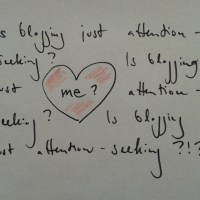 is blogging just attention -
seeking ? Is blogging
just me ? attention -
seeking ? Is blogging
just attention - seeking ?!?